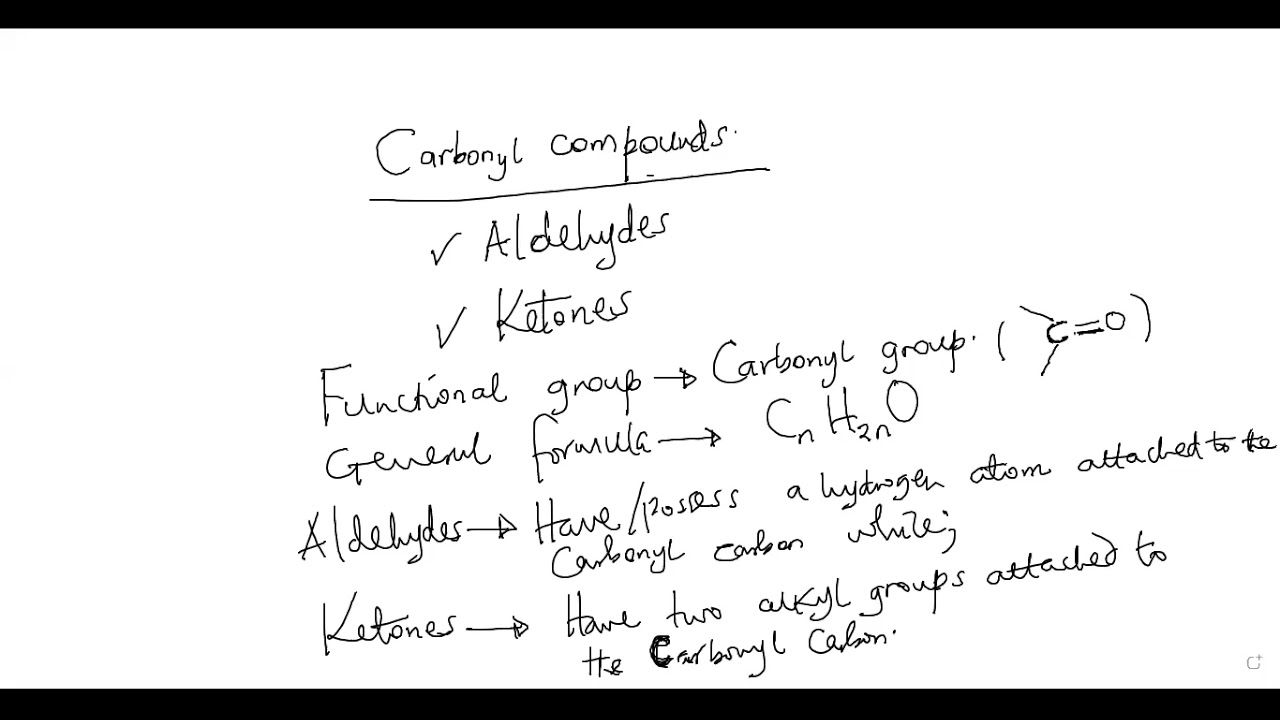 Carbonyl compounds.
✓ Aldehydes
✓ Ketones
Functional group → Carbonyl group. (C=O)
General formula → CnH2nO
Aldehydes → Have/possess a hydrogen atom attached to the
Carbonyl carbon while;
Ketones → Have two alkyl groups attached to
the Carbonyl Carbon.